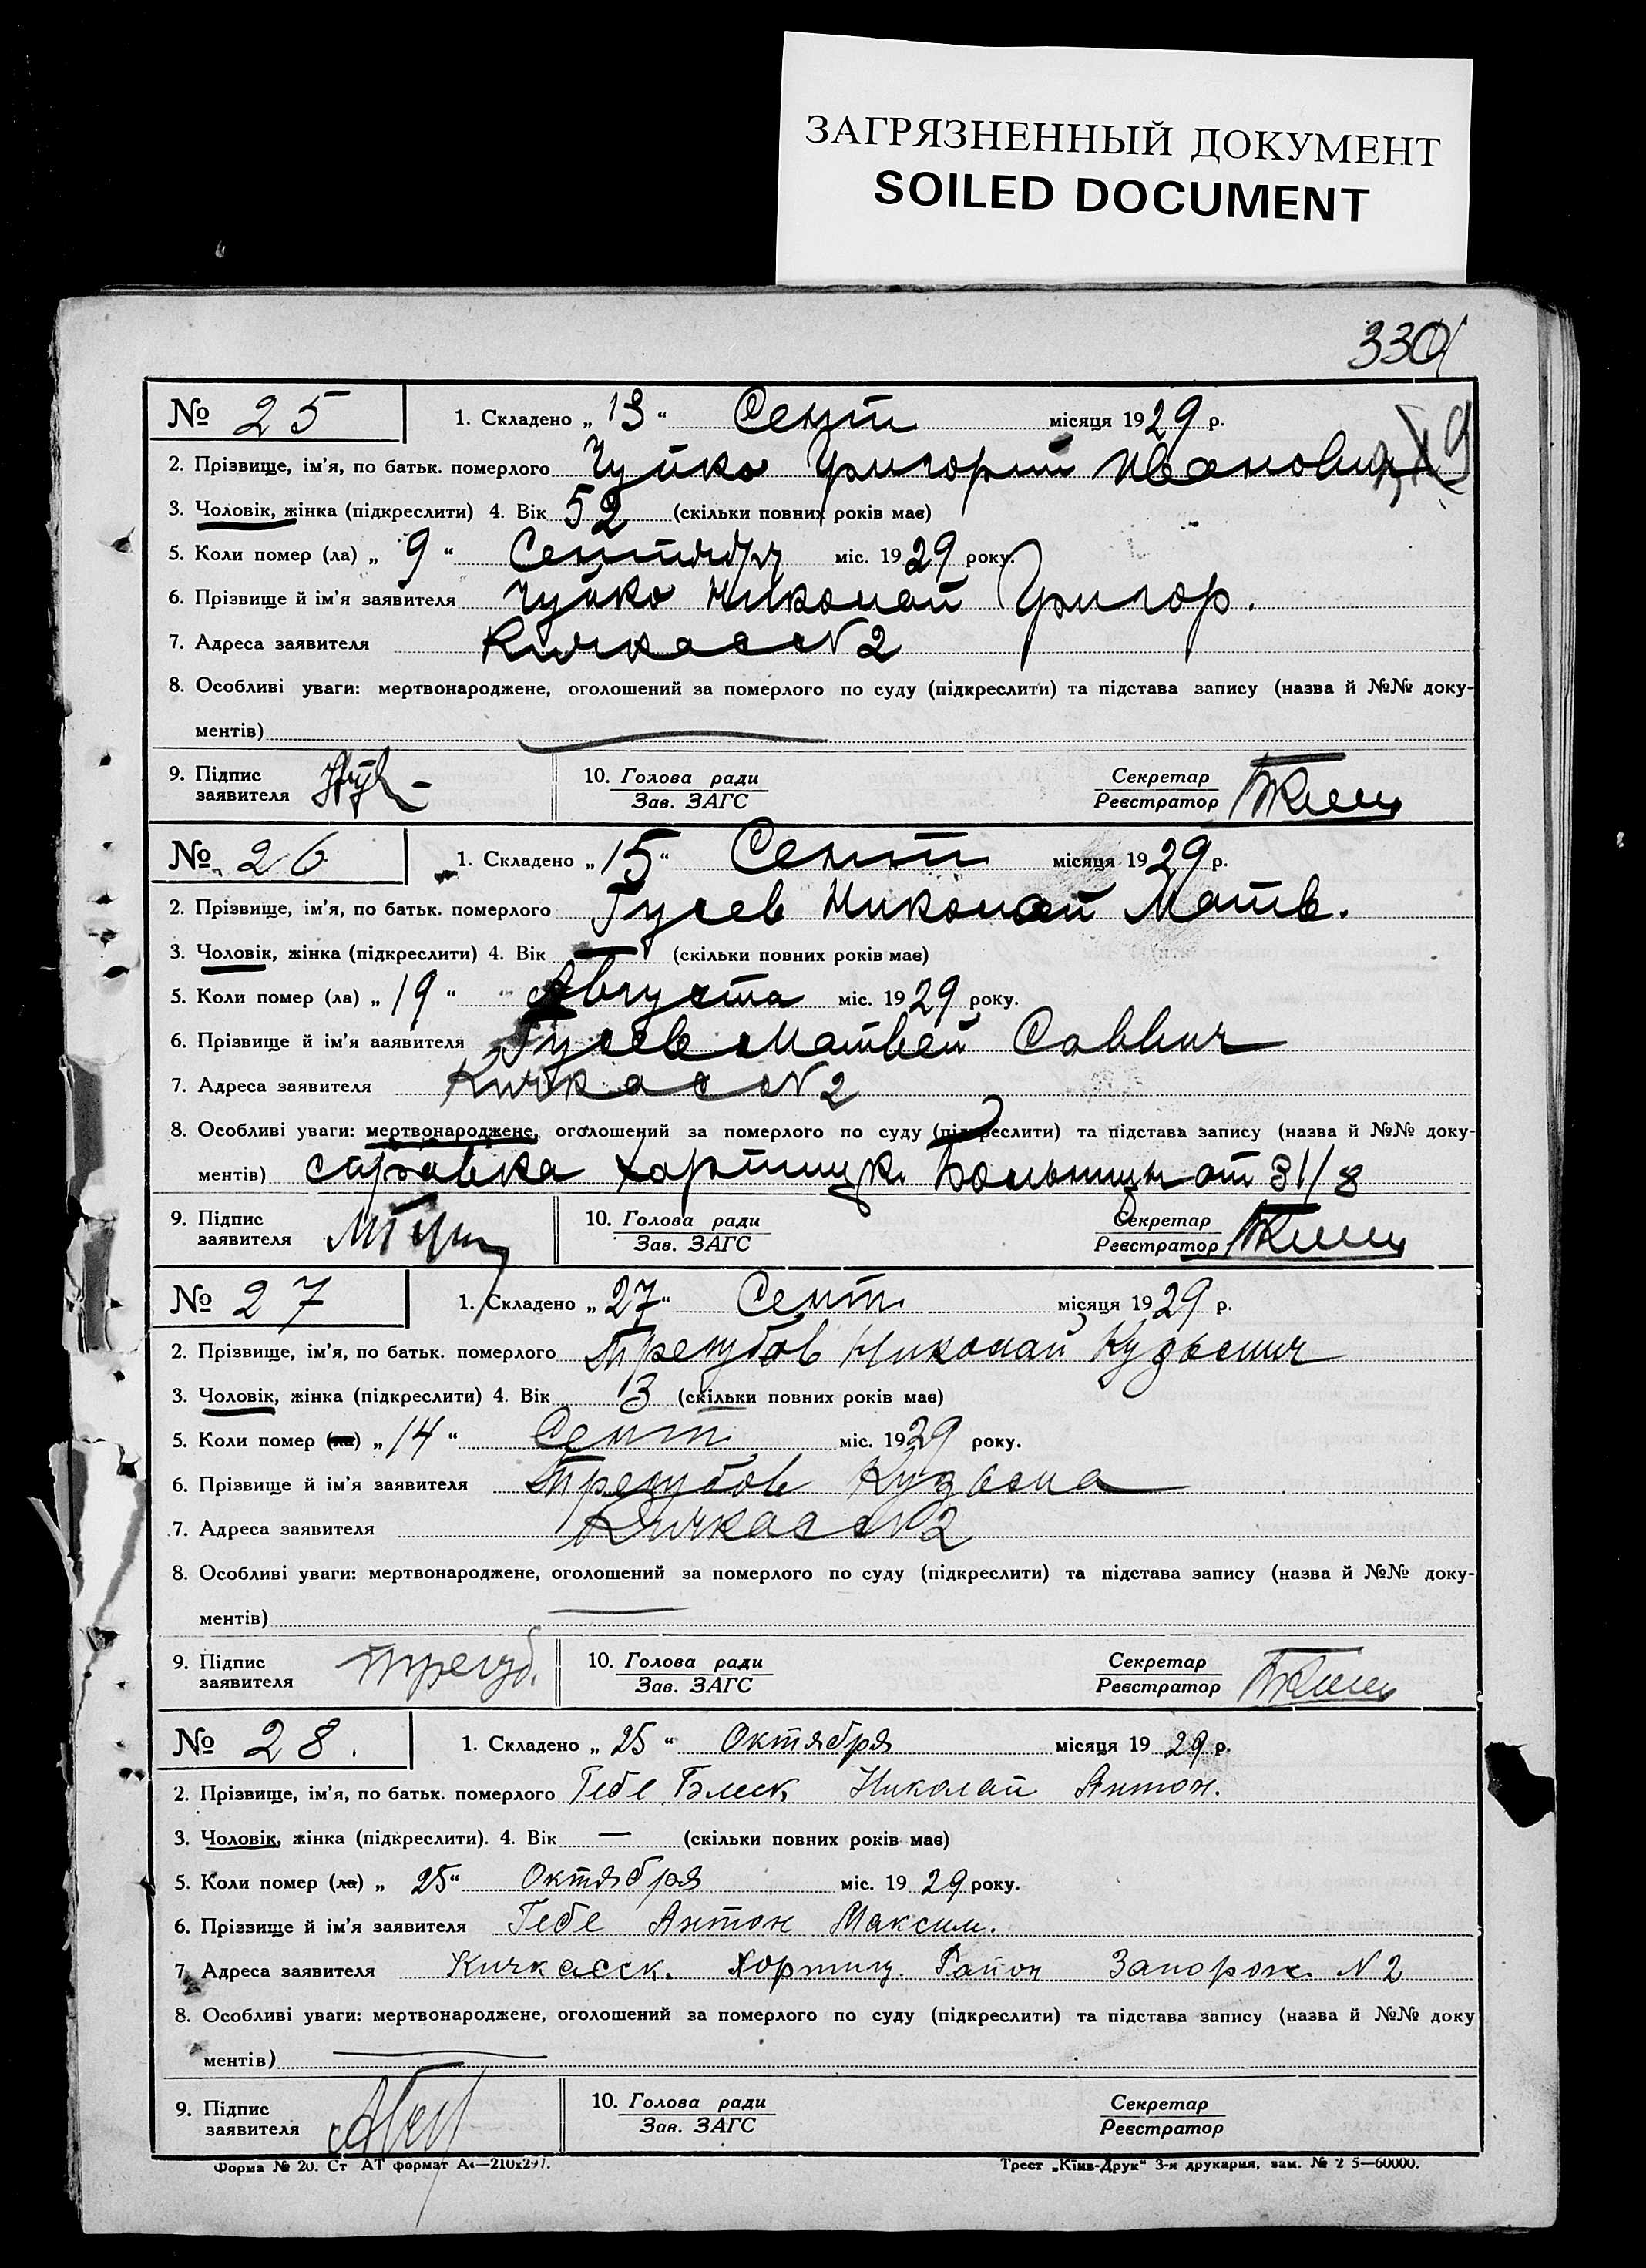 ЗАГРЯЗНЕННЫЙ ДОКУМЕНТ
SOILED DOCUMENT
330
№ 25 1. Складено „ 13 “ Сент місяця 1929 р.
2. Прізвище, ім'я, по батьк. померлого Чуйко Григорий Иванович
3. Чоловік, жінка (підкреслити) 4. Вік 52 (скільки повних років має)
5. Коли помер (ла) „ 9 “ Сентября міс. 1929 року.
6. Прізвище й ім'я заявителя Чуйко Николай Григор.
7. Адреса заявителя Кичкасс N 2
8. Особливі уваги: мертвонароджене, оголошений за померлого по суду (підкреслити) та підстава запису (назва й №№ доку-
ментів)
9. Підпис заявителя 10. Голова ради Секретар
Зав. ЗАГС Реєстратор
№ 26 1. Складено „ 15 “ Сент місяця 1929 р.
2. Прізвище, ім'я, по батьк. померлого Гусев Николай Матв.
3. Чоловік, жінка (підкреслити) 4. Вік — (скільки повних років має)
5. Коли помер (ла) „ 19 “ Августа міс. 1929 року.
6. Прізвище й ім'я заявителя Гусев Матвей Саввич
7. Адреса заявителя Кичкас N 2
8. Особливі уваги: мертвонароджене, оголошений за померлого по суду (підкреслити) та підстава запису (назва й №№ доку-
ментів) справка Хортицк. Больницы от 31/8
9. Підпис заявителя 10. Голова ради Секретар
Зав. ЗАГС Реєстратор
№ 27 1. Складено „ 27 “ Сент. місяця 1929 р.
2. Прізвище, ім'я, по батьк. померлого Трегубов Николай Кузьмич
3. Чоловік, жінка (підкреслити) 4. Вік 3 (скільки повних років має)
5. Коли помер (ла) „ 14 “ Сент міс. 1929 року.
6. Прізвище й ім'я заявителя Трегубов Кузьма
7. Адреса заявителя Кичкасс N 2
8. Особливі уваги: мертвонароджене, оголошений за померлого по суду (підкреслити) та підстава запису (назва й №№ доку-
ментів)
9. Підпис заявителя Трегуб. 10. Голова ради Секретар
Зав. ЗАГС Реєстратор
№ 28. 1. Складено „ 25 “ Октября місяця 1929 р.
2. Прізвище, ім'я, по батьк. померлого Гебе Николай Антон.
3. Чоловік, жінка (підкреслити). 4. Вік — (скільки повних років має)
5. Коли помер (ла) „ 25 “ Октября міс. 1929 року.
6. Прізвище й ім'я заявителя Гебе Антон Максим.
7. Адреса заявителя Кичкасск. Хортиц. Район Запорож. N 2
8. Особливі уваги: мертвонароджене, оголошений за померлого по суду (підкреслити) та підстава запису (назва й №№ доку
ментів)
9. Підпис заявителя 10. Голова ради Секретар
Зав. ЗАГС Реєстратор
Форма № 20. Ст АТ формат А4—210х297. Трест „Київ-Друк“ 3-я друкарня, зам. № 2 5—60000.